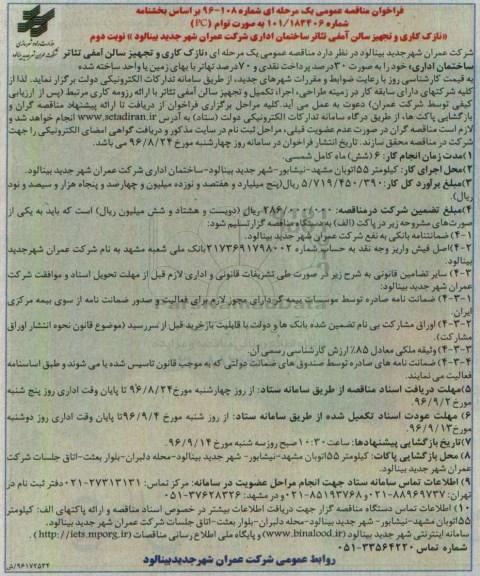 فراخوان مناقصه عمومی یک مرحله ای شماره ۱۰۸-۹۶ بر اساس بخشنامه
شماره ۱۰۱/۱۸۳۴۰۶ به صورت توام (PC)
«نازک کاری و تجهیز سالن آمفی تئاتر ساختمان اداری شرکت عمران شهر جدید بینالود» نوبت دوم
شرکت عمران شهرجدید بینالود در نظر دارد مناقصه عمومی یک مرحله ای «نازک کاری و تجهیز سالن آمفی تئاتر
ساختمان اداری» خود را به صورت ۳۰درصد پرداخت نقدی و ۷۰درصد تهاتر با بهای زمین یا واحد ساخته شده
به قیمت کارشناسی روز با رعایت ضوابط و مقررات شهرهای جدید، از طریق سامانه تدارکات الکترونیکی دولت برگزار نماید. لذا از
کلیه شرکتهای دارای سابقه کار در زمینه طراحی، اجراء، تکمیل و تجهیز سالن آمفی تئاتر با ارائه رزومه کاری مرتبط (پس از ارزیابی
کیفی توسط شرکت عمران) دعوت به عمل می آید. کلیه مراحل برگزاری فراخوان از دریافت تا ارائه پیشنهاد مناقصه گران و
بازگشایی پاکت ها، از طریق درگاه سامانه تدارکات الکترونیکی دولت (ستاد) به آدرس www.setadiran.ir انجام خواهد شد و
لازم است مناقصه گران در صورت عدم عضویت قبلی، مراحل ثبت نام در سایت مذکور و دریافت گواهی امضای الکترونیکی را جهت
شرکت در مناقصه محقق سازند. تاریخ انتشار فراخوان در سامانه روز چهارشنبه مورخ ۹۶/۸/۲۴ می باشد.
۱) مدت زمان انجام کار: ۶ (شش) ماه کامل شمسی.
۲) محل اجرای کار: کیلومتر ۵۵ اتوبان مشهد-نیشابور-شهر جدید بینالود-ساختمان اداری شرکت عمران شهر جدید بینالود.
۳) مبلغ برآورد کل کار: ۵/۷۱۹/۴۵۰/۳۹۰ ریال (پنج میلیارد و هفتصد و نوزده میلیون و چهارصد و پنجاه هزار و سیصد و نود
ریال).
۴) مبلغ تضمین شرکت در مناقصه: ۲۸۶/۰۰۰/۰۰۰ ریال (دویست و هشتاد و شش میلیون ریال) است که باید به یکی از
صورت‌های مشروحه زیر در پاکت (الف) به دستگاه مناقصه گزار تسلیم شود:
۴-۱) ضمانتنامه بانکی به نفع شرکت عمران شهر جدید بینالود.
۴-۲) اصل فیش واریز وجه نقد به حساب شماره ۲۱۷۳۶۹۱۷۹۸۰۰۲ بانک ملی شعبه مشهد به نام شرکت عمران شهرجدید
بینالود.
۴-۳) سایر تضامین قانونی به شرح زیر در صورت طی تشریفات قانونی و اداری لازم قبل از مهلت تحویل اسناد و موافقت شرکت
عمران شهر جدید بینالود:
۴-۳-۱) ضمانت نامه صادره توسط موسسات بیمه گر دارای مجوز لازم برای فعالیت و صدور ضمانت نامه از سوی بیمه مرکزی
ایران.
۴-۳-۲) اوراق مشارکت بی نام تضمین شده بانک ها و دولت با قابلیت بازخرید قبل از سررسید (موضوع قانون نحوه انتشار اوراق
مشارکت).
۴-۳-۳) وثیقه ملکی معادل ۸۵٪ ارزش کارشناسی رسمی آن.
۴-۳-۴) ضمانت نامه های صادره توسط صندوق های ضمانت دولتی که به موجب قانون تاسیس شده یا می شوند و طبق اساسنامه
فعالیت می نمایند.
۵) مهلت دریافت اسناد مناقصه از طریق سامانه ستاد: از روز چهارشنبه مورخ ۹۶/۸/۲۴ تا پایان وقت اداری روز پنج شنبه
مورخ ۹۶/۹/۲.
۶) مهلت عودت اسناد تکمیل شده از طریق سامانه ستاد: از روز شنبه مورخ ۹۶/۹/۴ تا پایان وقت اداری روز دوشنبه
مورخ ۹۶/۹/۱۳.
۷) تاریخ بازگشایی پیشنهادها: ساعت ۱۰:۳۰ صبح روز سه شنبه مورخ ۹۶/۹/۱۴.
۸) محل بازگشایی پاکات: کیلومتر ۵۵ اتوبان مشهد-نیشابور- شهر جدید بینالود-محله دلبران-بلوار بعثت-اتاق جلسات شرکت
عمران شهر جدید بینالود.
۹) اطلاعات تماس سامانه ستاد جهت انجام مراحل عضویت در سامانه: مرکز تماس: ۲۷۳۱۳۱۳۱-۰۲۱ دفتر ثبت نام در
تهران: ۸۸۹۶۹۷۳۷-۰۲۱ و ۸۵۱۹۳۷۶۸-۰۲۱ و در مشهد: ۳۷۶۲۸۳۲۶-۰۵۱
۱۰) اطلاعات تماس دستگاه مناقصه گزار جهت دریافت اطلاعات بیشتر در خصوص اسناد مناقصه و ارائه پاکتهای الف: کیلومتر
۵۵ اتوبان مشهد-نیشابور- شهر جدید بینالود-محله دلبران-بلوار بعثت-اتاق جلسات شرکت عمران شهر جدید بینالود.
سامانه اینترنتی شهر جدید بینالود (www.binalood.ir) و پایگاه ملی اطلاع رسانی مناقصات (http://iets.mporg.ir)
شماره تماس ۳۳۵۶۴۲۲۰-۰۵۱
روابط عمومی شرکت عمران شهر جدید بینالود
۹۶۱۷۲۵۳۴/ش